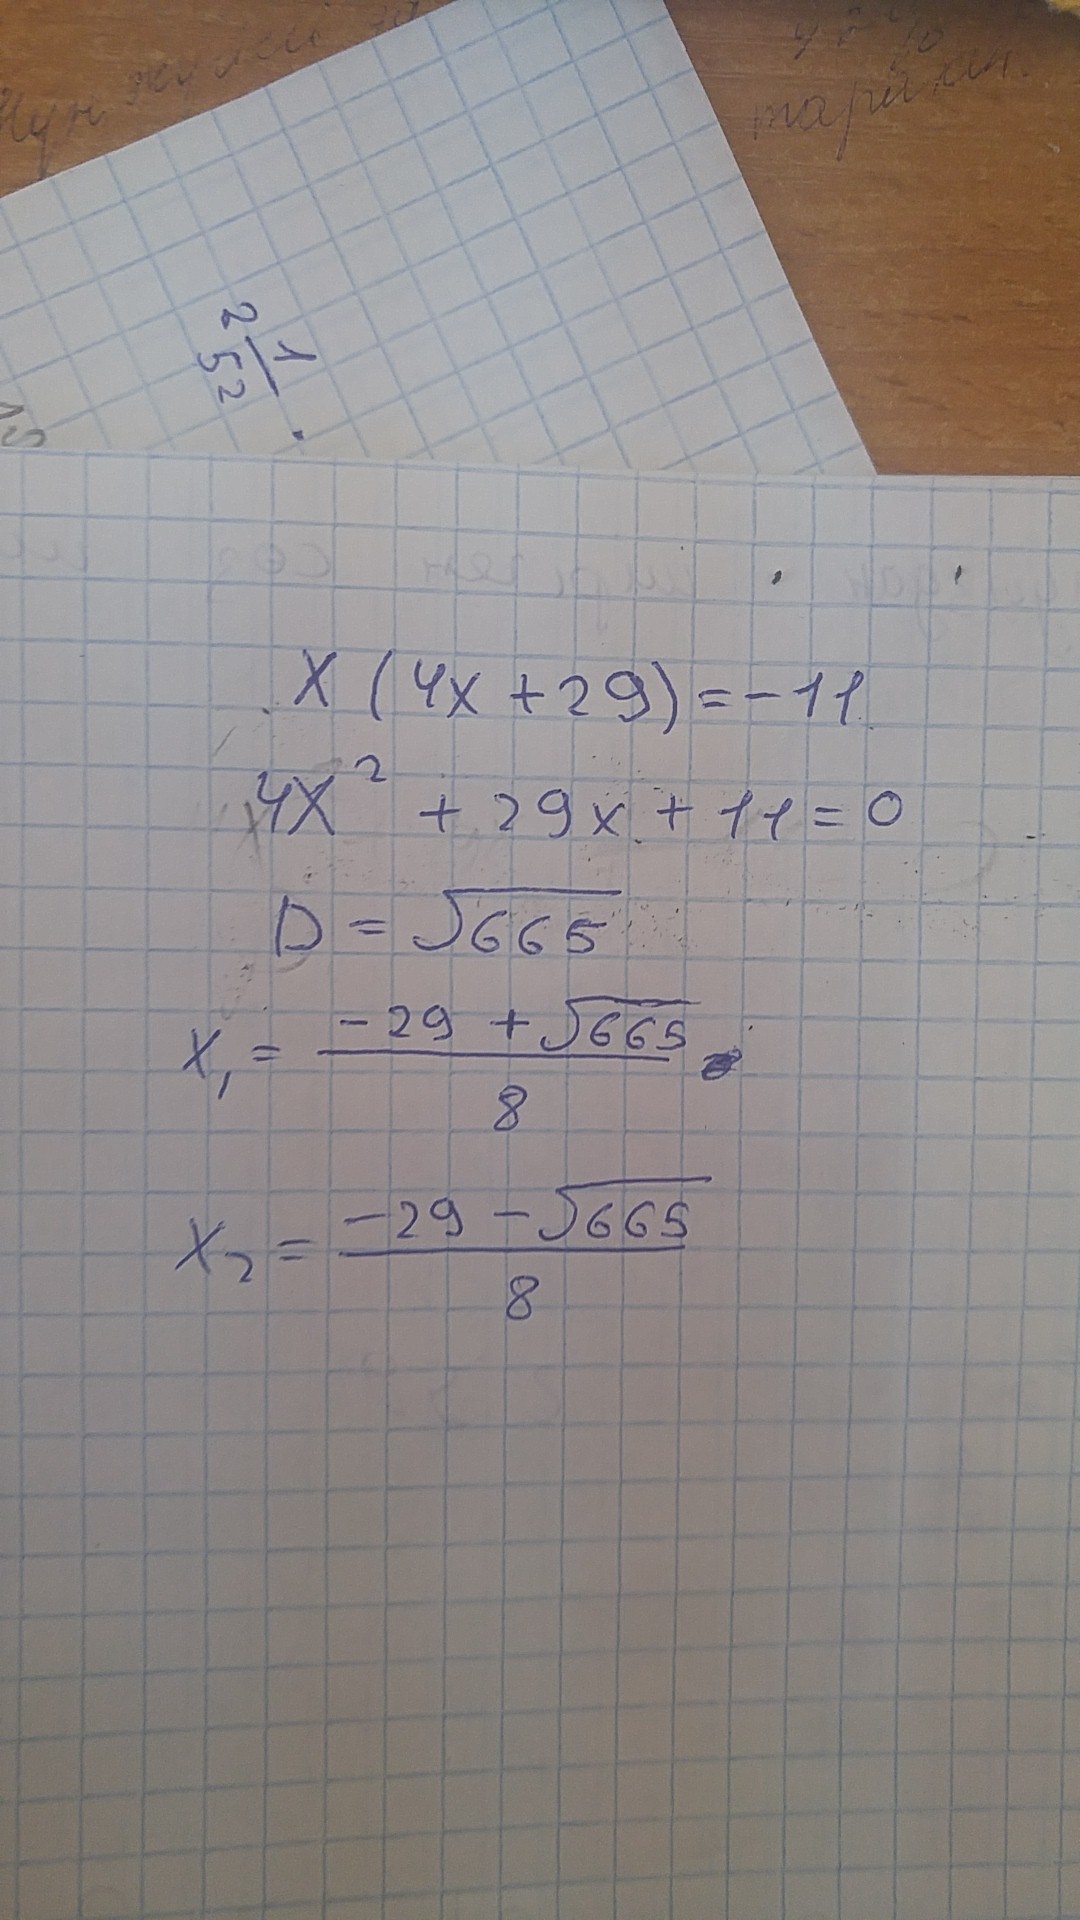 тарихи.
2 1/52 .
x (4x + 29) = -11
4x² + 29x + 11 = 0
D = √665
x₁ = (-29 + √665)/8
x₂ = (-29 - √665)/8